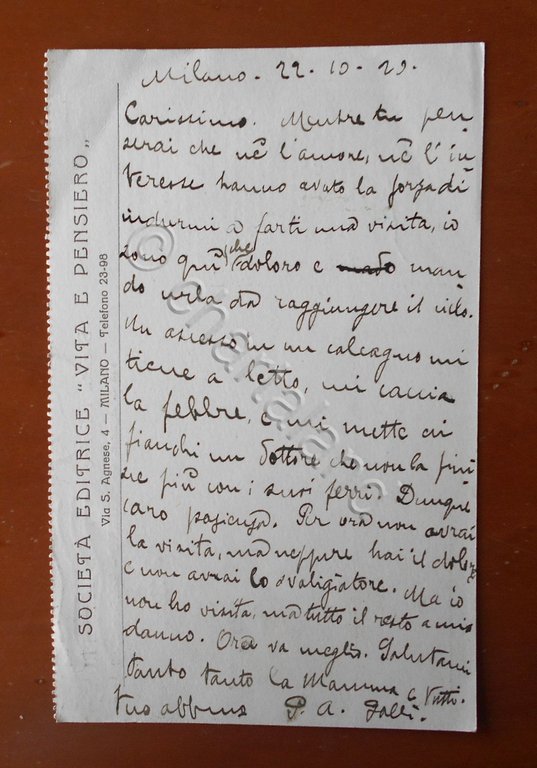 SOCIETÀ EDITRICE "VITA E PENSIERO"
Via S. Agnese, 4 — MILANO — Telefono 23-98
Milano - 22 - 10 - 29.
Carissimo. Mentre tu pen
serai che nè l'amore, nè l'in
teresse hanno avuto la forza di
indurmi a farti una visita, io
sono qui che doloro e man
do urla da raggiungere il cielo.
Un ascesso in un calcagno mi
tiene a letto, mi caccia
la febbre, e mi mette ai
fianchi un dottore che non la fini
sce più con i suoi ferri. Dunque
caro pazienza. Per ora non avrai
la visita, ma neppure hai il dolore
e non avrai lo svaligiatore. Ma io
non ho visita, ma tutto il resto a mio
danno. Ora va meglio. Salutami
tanto tanto la Mamma e tutti.
tuo P. A.
© chartaland